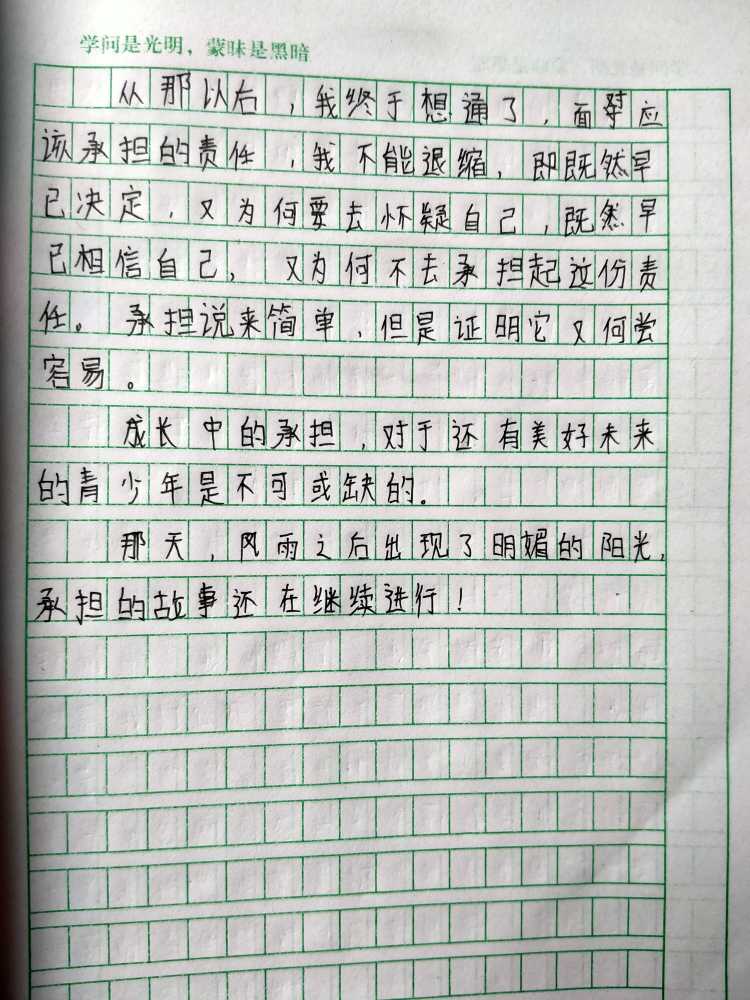 学问是光明，蒙昧是黑暗
从那以后，我终于想通了，面对应
该承担的责任，我不能退缩，即既然早
已决定，又为何要去怀疑自己，既然早
已相信自己，又为何不去承担起这份责
任。承担说来简单，但是证明它又何尝
容易。
成长中的承担，对于还有美好未来
的青少年是不可或缺的。
那天，风雨之后出现了明媚的阳光，
承担的故事还在继续进行！